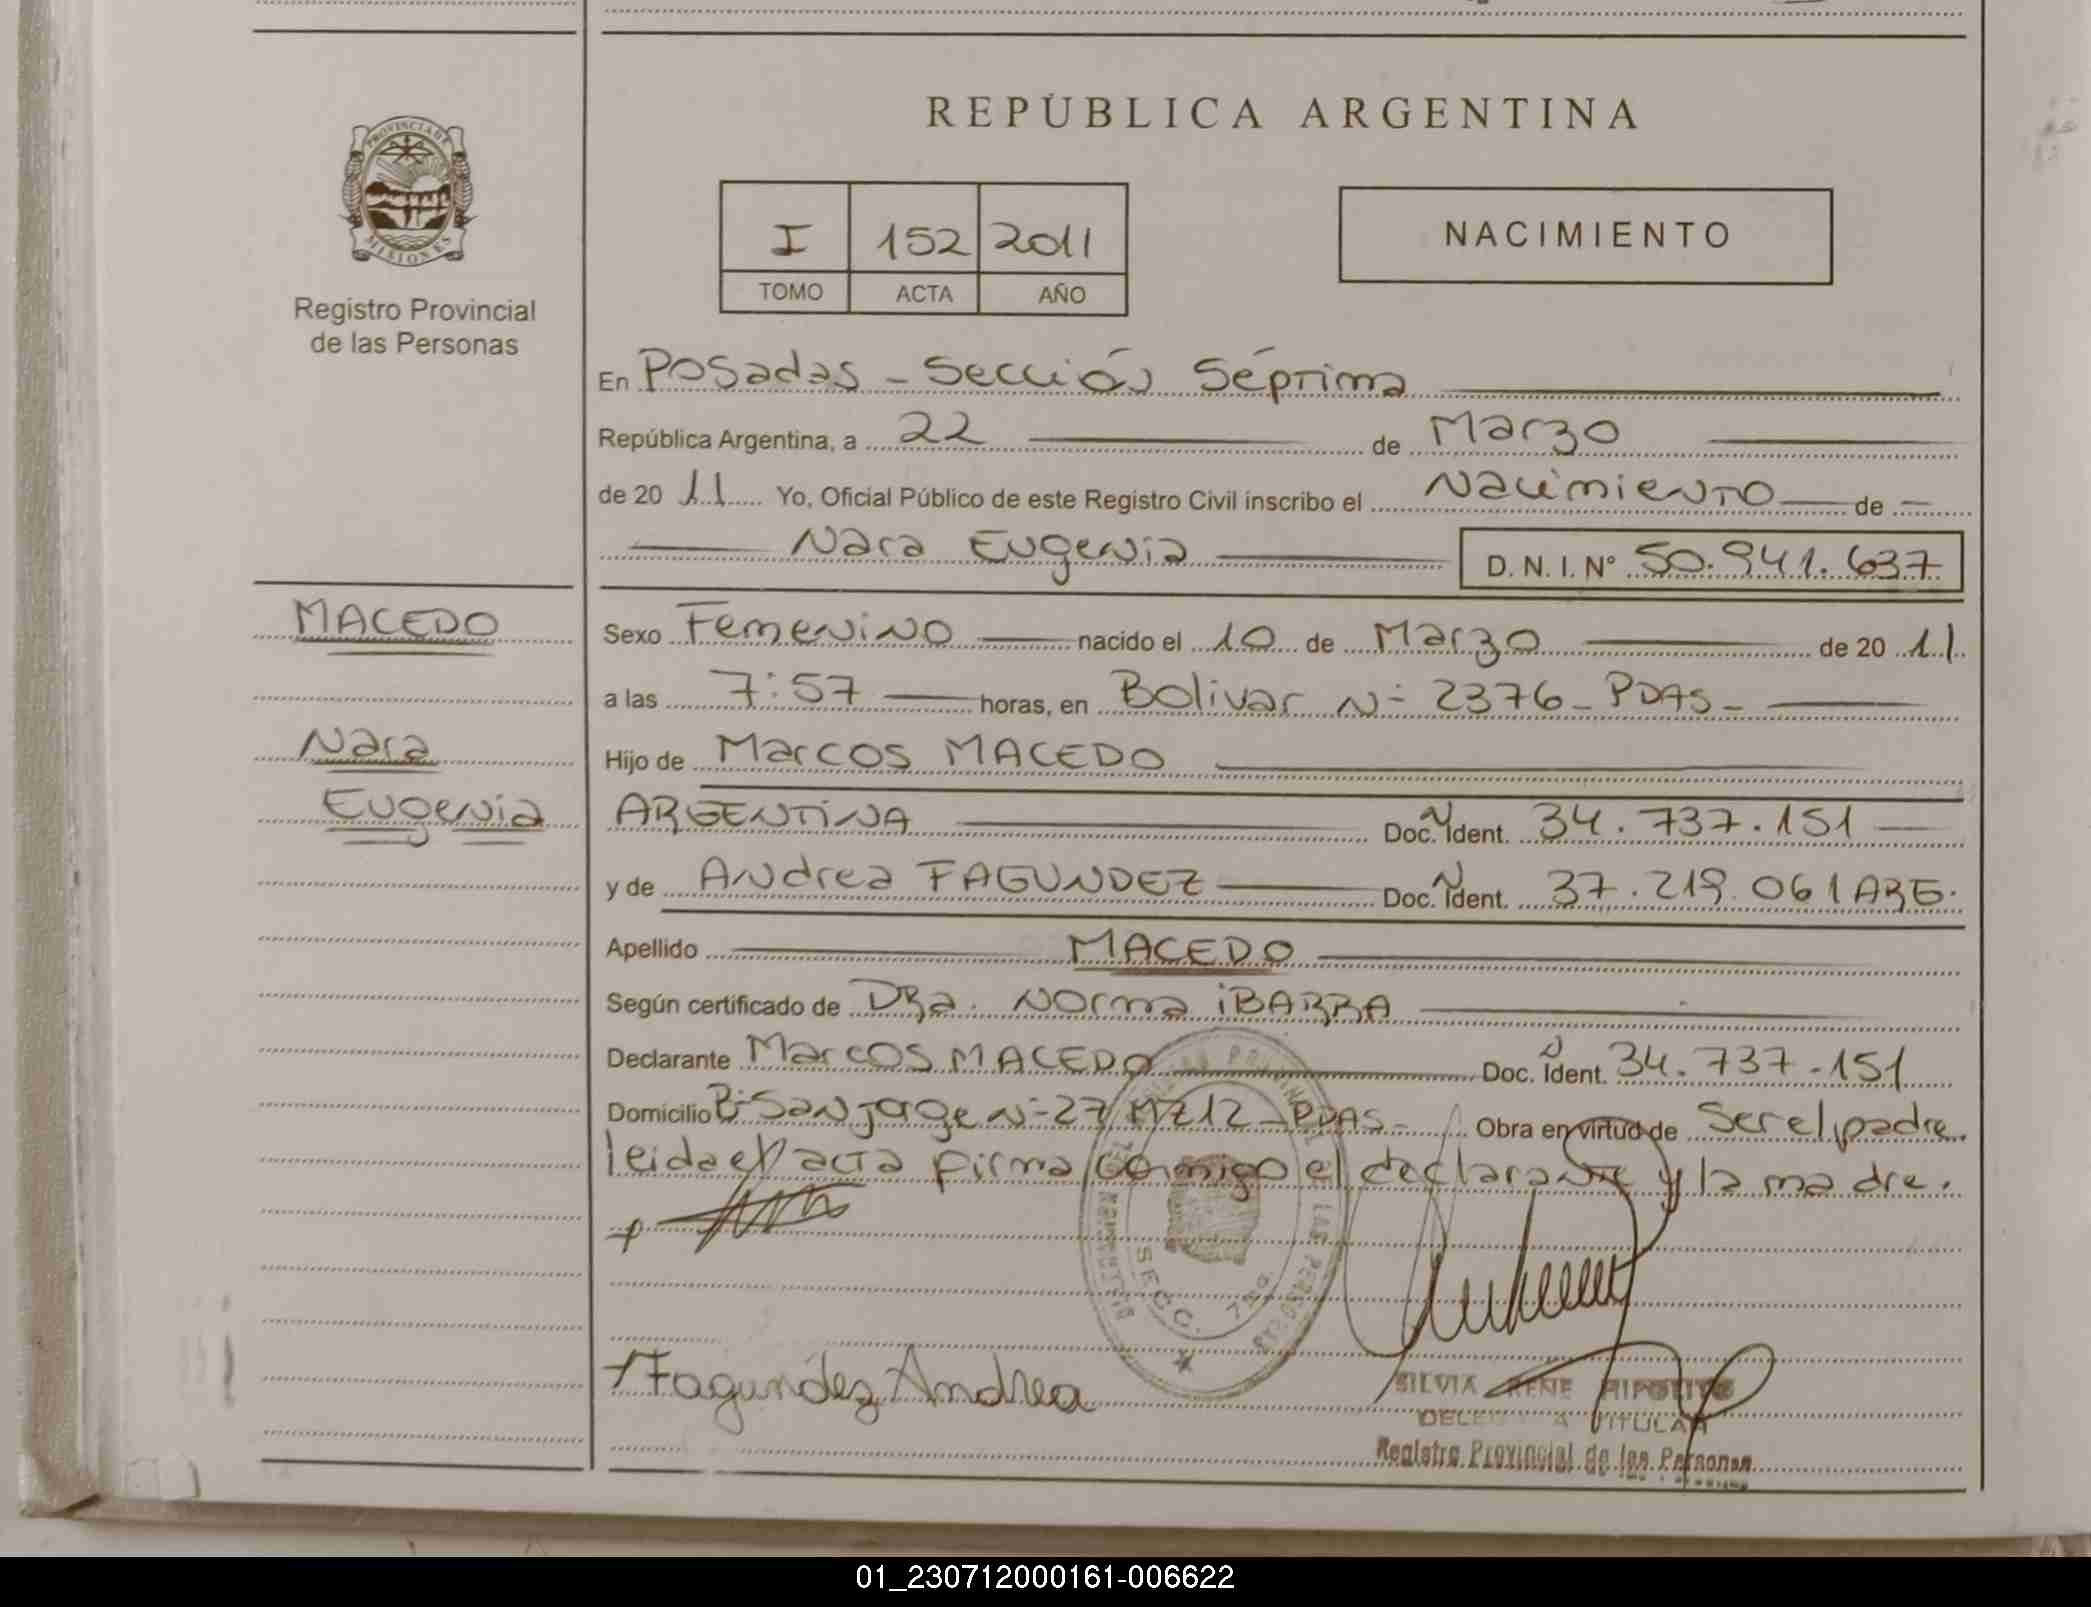 REPÚBLICA ARGENTINA
PROVINCIA DE
MISIONES
Registro Provincial
de las Personas
I 152 2011
TOMO ACTA AÑO
NACIMIENTO
En Posadas - Sección Séptima
República Argentina, a 22 de Marzo
de 20 11 Yo, Oficial Público de este Registro Civil inscribo el Nacimiento de
Nara Eugenia D. N. I. Nº 50.941.637
MACEDO
Nara
Eugenia
Sexo Femenino nacido el 10 de Marzo de 20 11
a las 7:57 horas, en Bolivar N- 2376 - PDAS -
Hijo de Marcos MACEDO
ARGENTINA Doc. Ident. 34.737.151
y de Andrea FAGUNDEZ Doc. Ident. 37.219.061 ARG.
Apellido MACEDO
Según certificado de DRa. Norma iBARRA
Declarante Marcos MACEDO Doc. Ident. 34.737.151
Domicilio B- San Jorge N- 27 MZ 12 - PDAS - Obra en virtud de ser el padre
leida el acta firma conmigo el declarante y la madre.
SECC. 7ma.
Fagundez Andrea
SILVIA RENE HIPOLITO
DELEGADA TITULAR
Registro Provincial de las Personas
01_230712000161-006622